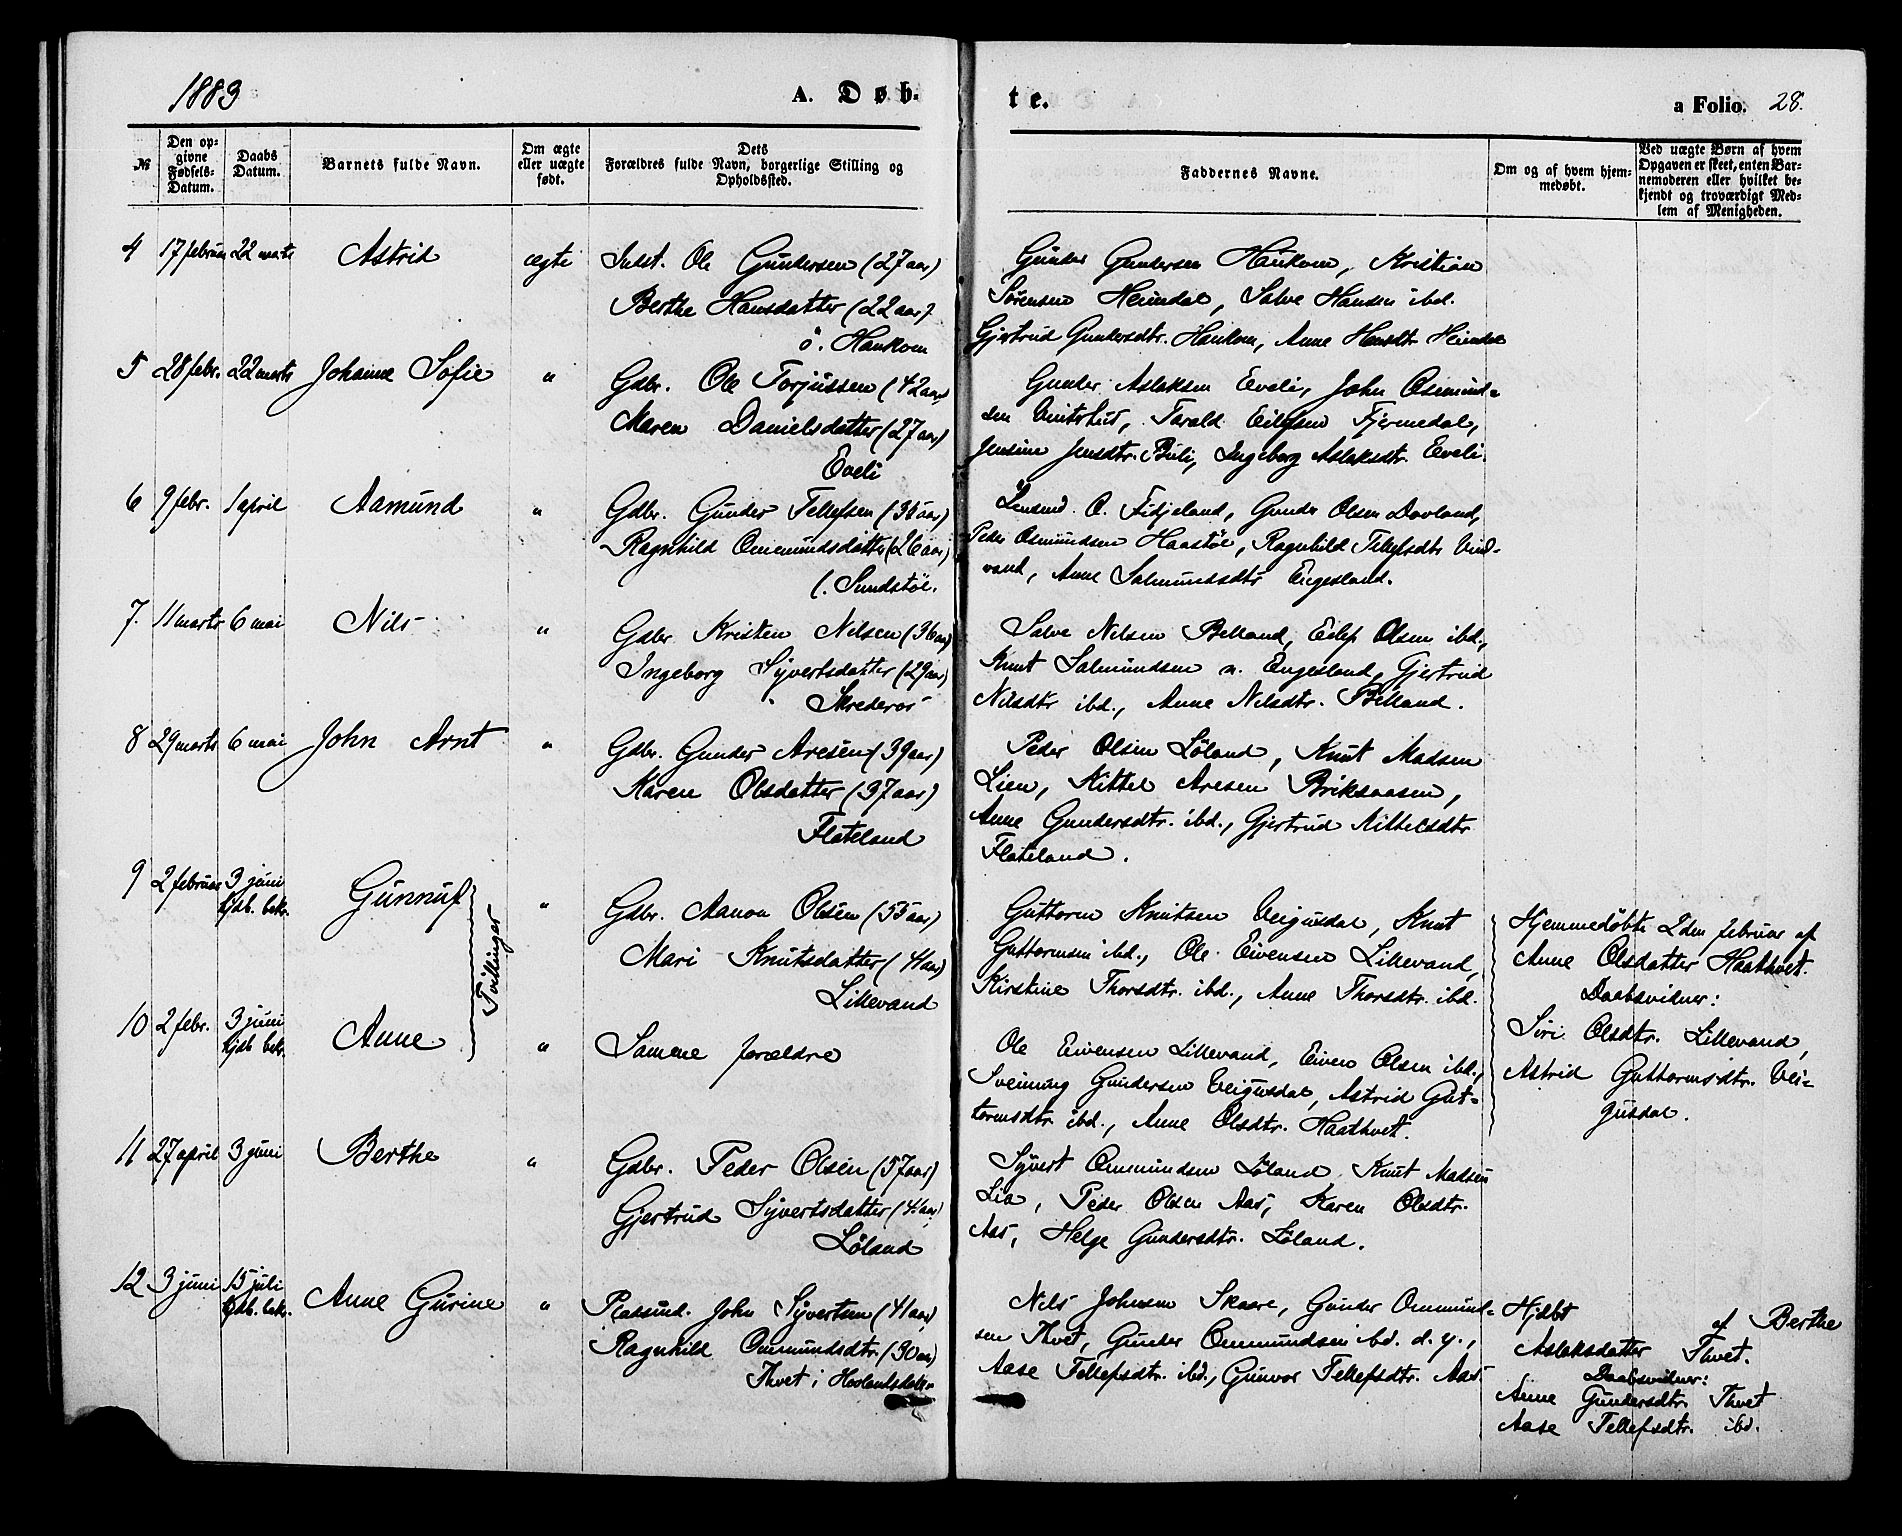 1883
A. Døb-
№
Den op-
givne
Fødsels-
Datum.
Daabs
Datum.
Barnets fulde Navn.
Om ægte
eller uægte
født.
Dets
Forældres fulde Navn, borgerlige Stilling og
Opholdssted.
4 17 februar 22 marts Astrid ægte Indst. Ole Gundersen (27 aar)
Berthe Hansdatter (22 aar)
ö. Haukom
5 28 febr. 22 marts Johanne Sofie " Gdbr. Ole Torjussen (42 aar)
Maren Danielsdatter (27 aar)
Eveli
6 9 febr. 1 april Aamund " Gdbr. Gunder Tellefsen (36 aar)
Ragnhild Ommundsdatter (26 aar)
l. Sundstöl.
7. 11 marts 6 mai Nils " Gdbr. Kristen Nilsen (36 aar)
Ingeborg Syvertsdatter (29 aar)
Skrederos
8 29 marts 6 mai John Arnt " Gdbr. Gunder Aresen (39 aar)
Karen Olsdatter (37 aar)
Flateland
9 2 februar 3 juni Gunnuf " Gdbr. Aanon Olsen (55 aar)
hjdb. bekr.
Mari Knutsdatter (41 aar)
Lillevand
Tvillinger
10 2 febr. 3 juni Anne " Samme forældre
hjdb bekr.
11 27 april 3 juni Berthe " Gdbr. Peder Olsen (57 aar)
Gjertrud Syvertsdatter (4 aar)
Löland
12 3 juni 15 juli Anne Gurine " Pladsmd. John Syvertsen (41 aar)
hjdb. bekr.
Ragnhild Ommundsdtr. (30 aar)
Thvet i Hovlandsdalen
te.
a Folio. 28.
Faddernes Navne.
Om og af hvem hjem-
medøbt.
Ved uægte Børn af hvem
Opgaven er skeet, enten Bar-
nemoderen eller hvilket be-
kjendt og troværdigt Med-
lem af Menigheden.
Gunder Gundersen Haukom, Kristian
Sørensen Heimdal, Salve Hansen ibd.
Gjertrud Gundersdtr. Haukom, Anne Hansdtr Heimdal
Gunder Aslaksen Eveli, John Osmund-
sen Vinterhus, Tarald Eilefsen Fjermedal,
Jensine Jensdtr. Buli, Ingeborg Aslaksdtr. Eveli.
Lensmd. O. Fidjeland, Gunder Olsen Dovland,
Peder Osmundsen Haastöl, Ragnhild Tellefsdtr. Vind-
vand, Anne Salmundsdtr Engesland.
Salve Nilsen Belland, Eilef Olsen ibd.,
Knut Salmundsen n. Engesland, Gjertrud
Nilsdtr ibd., Anne Nilsdtr. Belland.
Peder Olsen Löland, Knut Madsen
Lien, Kittel Aresen Birkeaasen,
Anne Gundersdtr. ibd., Gjertrud Kittelsdtr
Flateland.
Guttorm Knutsen Veigusdal, Knut
Guttormsen ibd., Ole Eivensen Lillevand,
Kirstine Thorsdtr. ibd., Anne Thorsdtr. ibd.
Ole Eivensen Lillevand, Eiven Olsen ibd.,
Sveinung Gundersen Veigusdal, Astrid Gut-
tormsdtr ibd., Anne Olsdtr. Haathvet.
Hjemmedöbte 2den februar af
Anne Olsdatter Haathvet.
Daabsvidner:
Siri Olsdtr. Lillevand,
Astrid Guttormsdtr. Vei-
gusdal.
Syvert Ommundsen Löland, Knut Madsen
Lia, Peder Olsen Aas, Karen Olsdtr.
Aas, Helge Gundersdtr. Löland.
Nils Johnsen Skaare, Gunder Ommund-
sen Thvet, Gunder Ommundsen ibd. d. y.,
Aase Tellefsdtr. ibd., Gunvor Tellefsdtr. Aas
Hjdbt
af Berthe
Aslaksdatter Thvet.
Daabsvidner:
Anne Gundersdtr. Thvet
Aase Tellefsdtr. ibd.